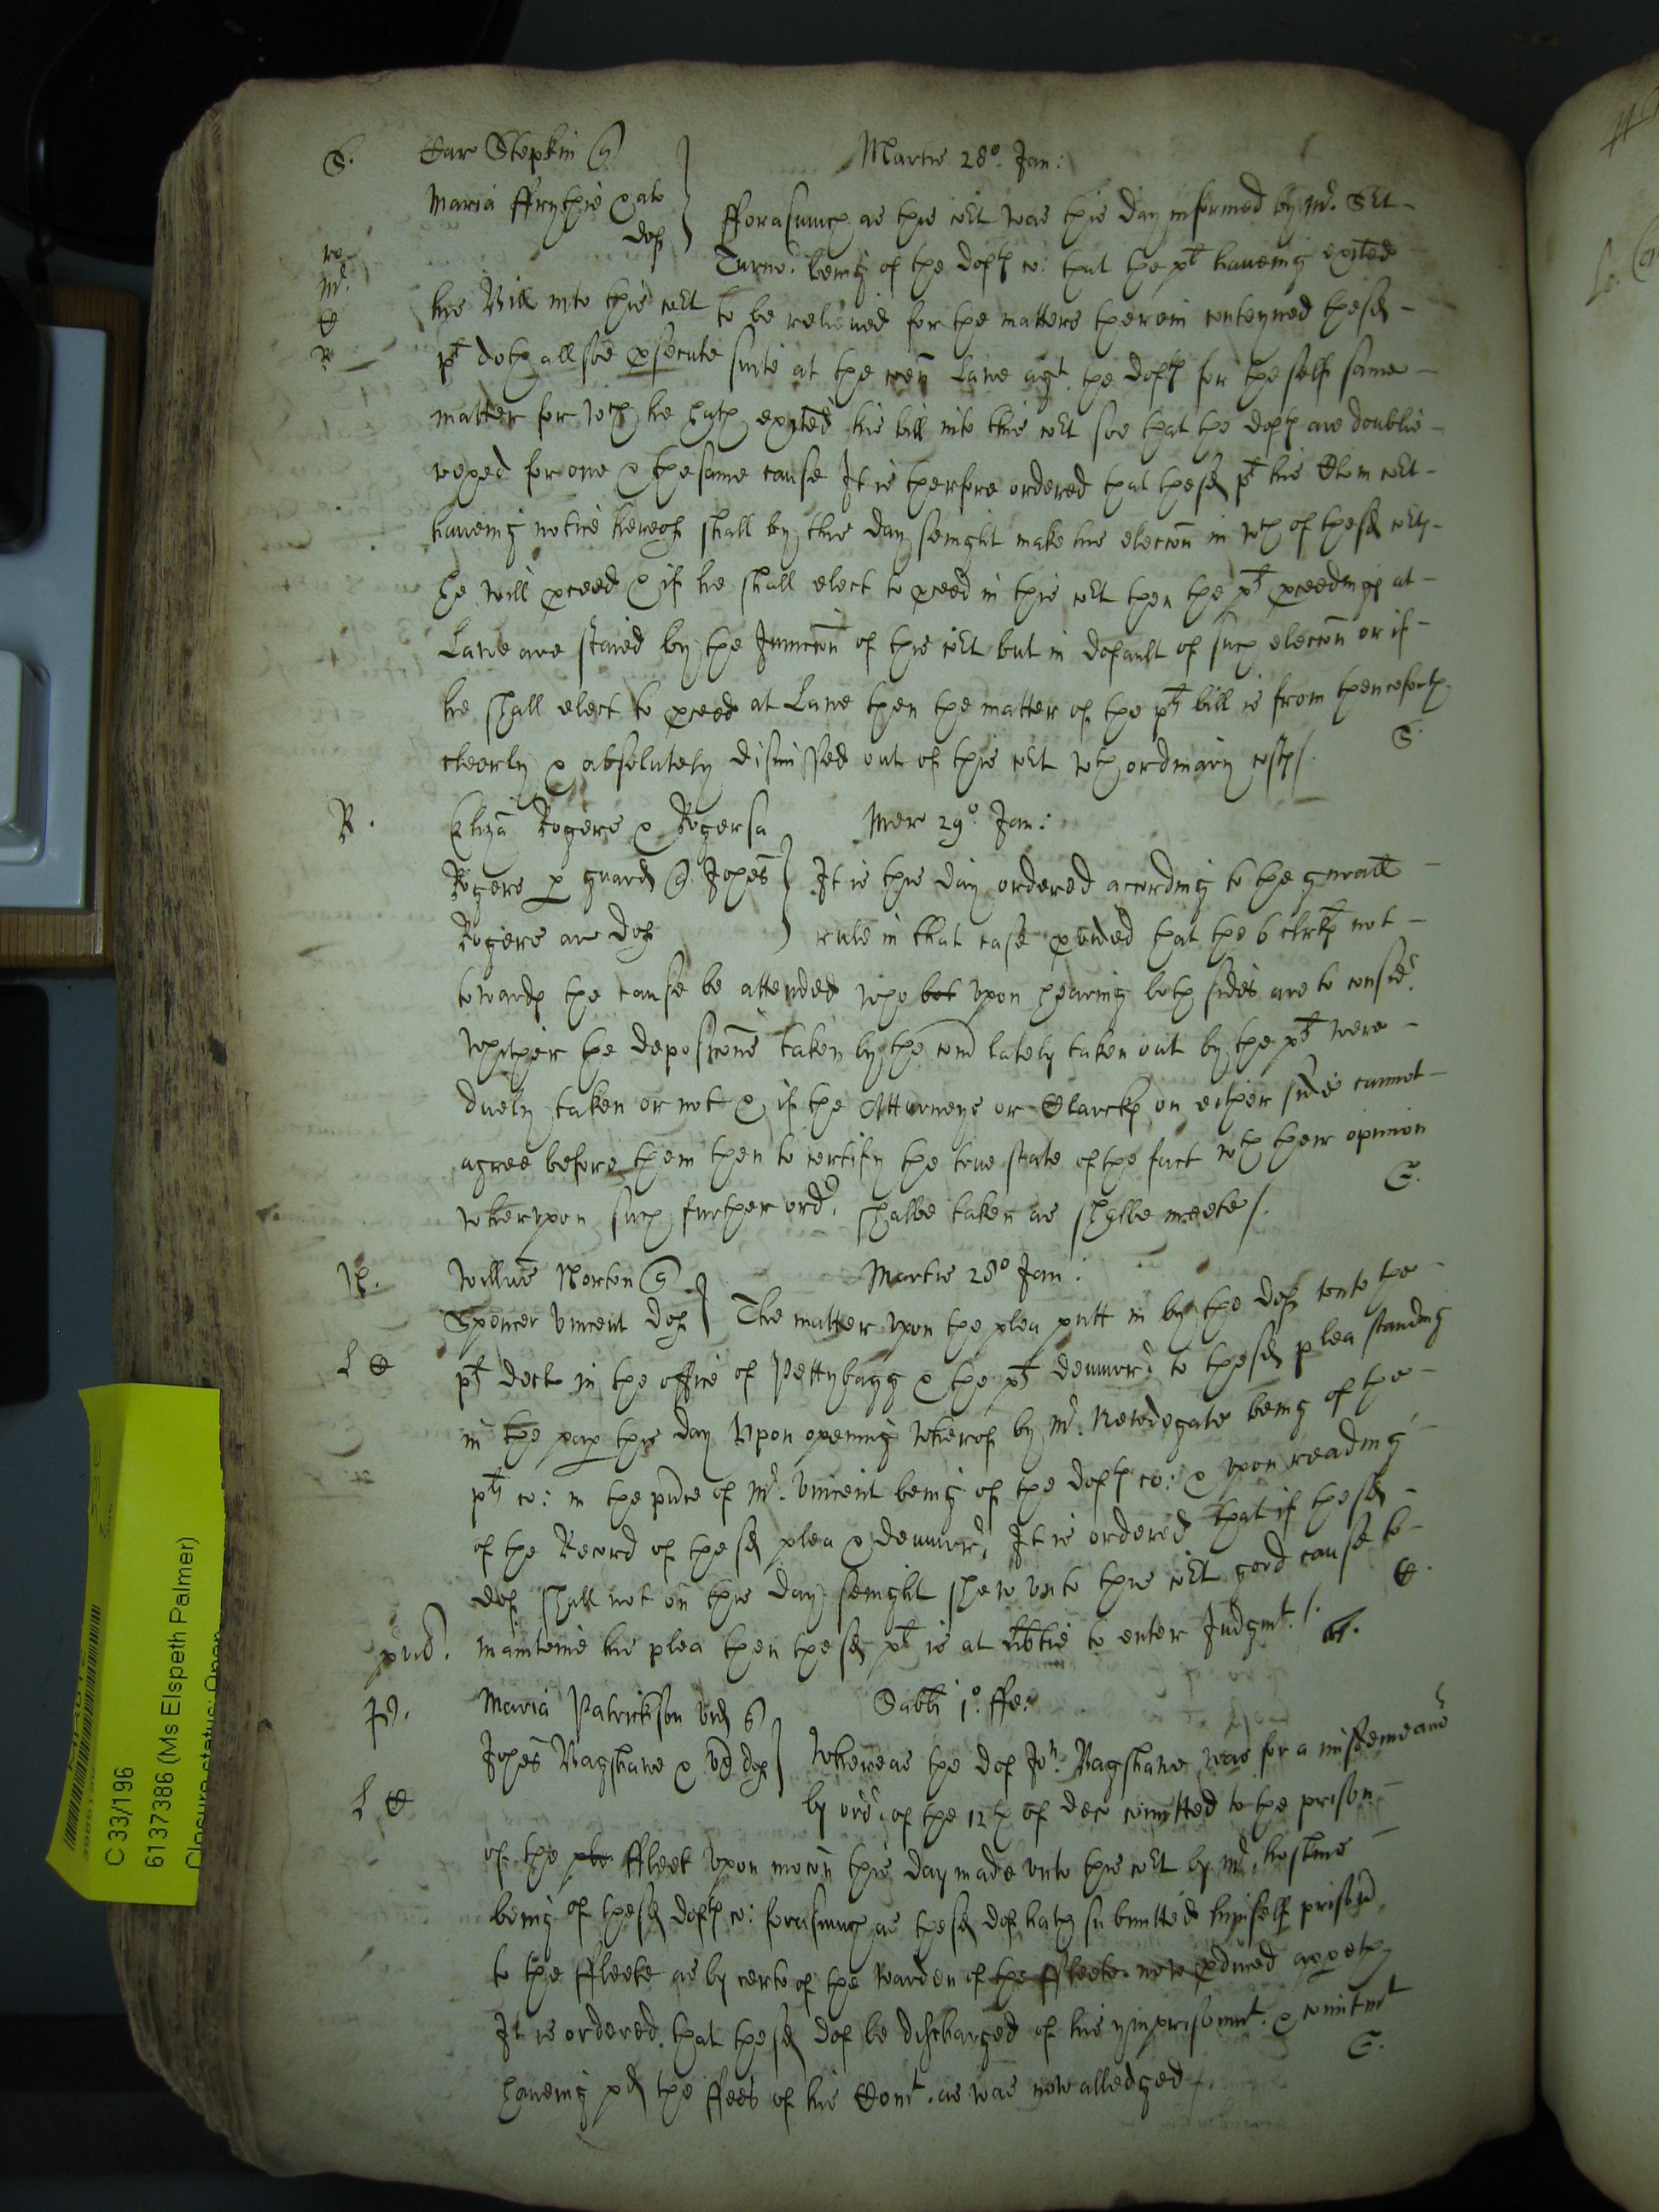 S. Car Stepkin q
Martis 28o. Jan:
Maria ffrythe & al
def
fforasmuch as this cort was this day informed by Mr. Sert
Turnor being of the defts co: that the plt haveing exited
re
Mr.
C
R
his Bill into this cort to be relieved for the matters therein conteyned the sd
plt doth allsoe psecute suite at the coen Lawe agt. the defts for the self same
matter for wch he hath exited his bill into this cort soe that the defts are doublie
vexed for one & the same cause It is therfore ordered that the sd plt his Clk in cort
haveing notice hereof shall by this day senight make his eleccon in wch of the sd corts
he will pceed & if he shall elect to pceed in this cort then the plts pceedings at
Lawe are staied by the Iniuncon of this cort but in default of such eleccon or if
he shall elect to pceed at Lawe then the matter of the plts bill is from thenceforth
cleerly & absolutely dismissed out of this cort wth ordinary costs /.
S.
R.
Eliza Rogers & Rogersa
Mer 29o. Jan:
Rogers p guard q Johes
It is this day ordered acording to the gnrall
Rogers ar def
rule in that case pvided that the 6 clrks not
towards the cause be attended who bot upon hearing both sides are to consider
whither the deposicons taken by the comn lately taken out by the plts were
duely taken or not & if the Atturneys or Clarcks on either side cannot
agree before them then to certify the true state of the fact wth their opinion
wherupon such further order shalbe taken as shalbe meete /.
E.
N.
Willus Norton q
Martis 28o Jan:
Spencer Vincent def
The matter upon the plea putt in by the def to the
L C
plts decl in the office of Pettybagg & the plts demurr to the sd plea standing
in the pap this day Upon opening wherof by Mr. Newdegate being of the
plts co: in the pnce of Mr. Vincent being of the defts co: & upon reading
of the Record of the sd plea & demurr, It is ordered that if the sd
def shall not on this day senight shew unto this cort good cause to
C.
pnd. mainteine his plea then the sd plt is at libtie to enter Judgmt. /.
P.
Maria Patrickson vid q
Sabbti 1o. ffe:
Johes Bagshawe & ux def
Whereas the def Jon. Bagshawe was for a misdemeanor
L C
by order of the 12th of Dec comitted to the prison
of the ple ffleet upon mocon this day made unto this cort by Mr. hoskins
being of the sd defts co: forasmuch as the sd def hath submitted himself prisoner
to the ffleete as by certe of the warden of the ffleete now pduced appeeth
It is ordered that the sd def be discharged of his imprisonmt. & comitmt
E.
haveing pd the ffees of his Comt. as was now alledged /.
C 33/196
6137386 (Ms Elspeth Palmer)
Closure status: Open